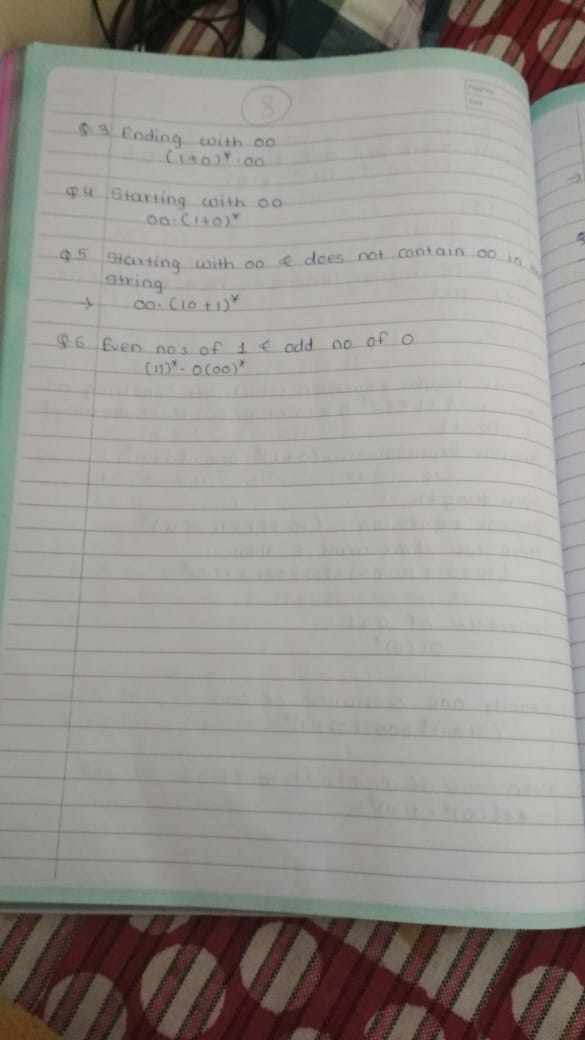 8
Page No.
Date
Q3 Ending with 00
(1+0)*.00
Q4 Starting with 00
00.(1+0)*
Q5 Starting with 00 & does not contain 00 in
string
→ 00.(10+1)*
Q.6 Even no's of 1 & odd no of 0
(11)*.0(00)*